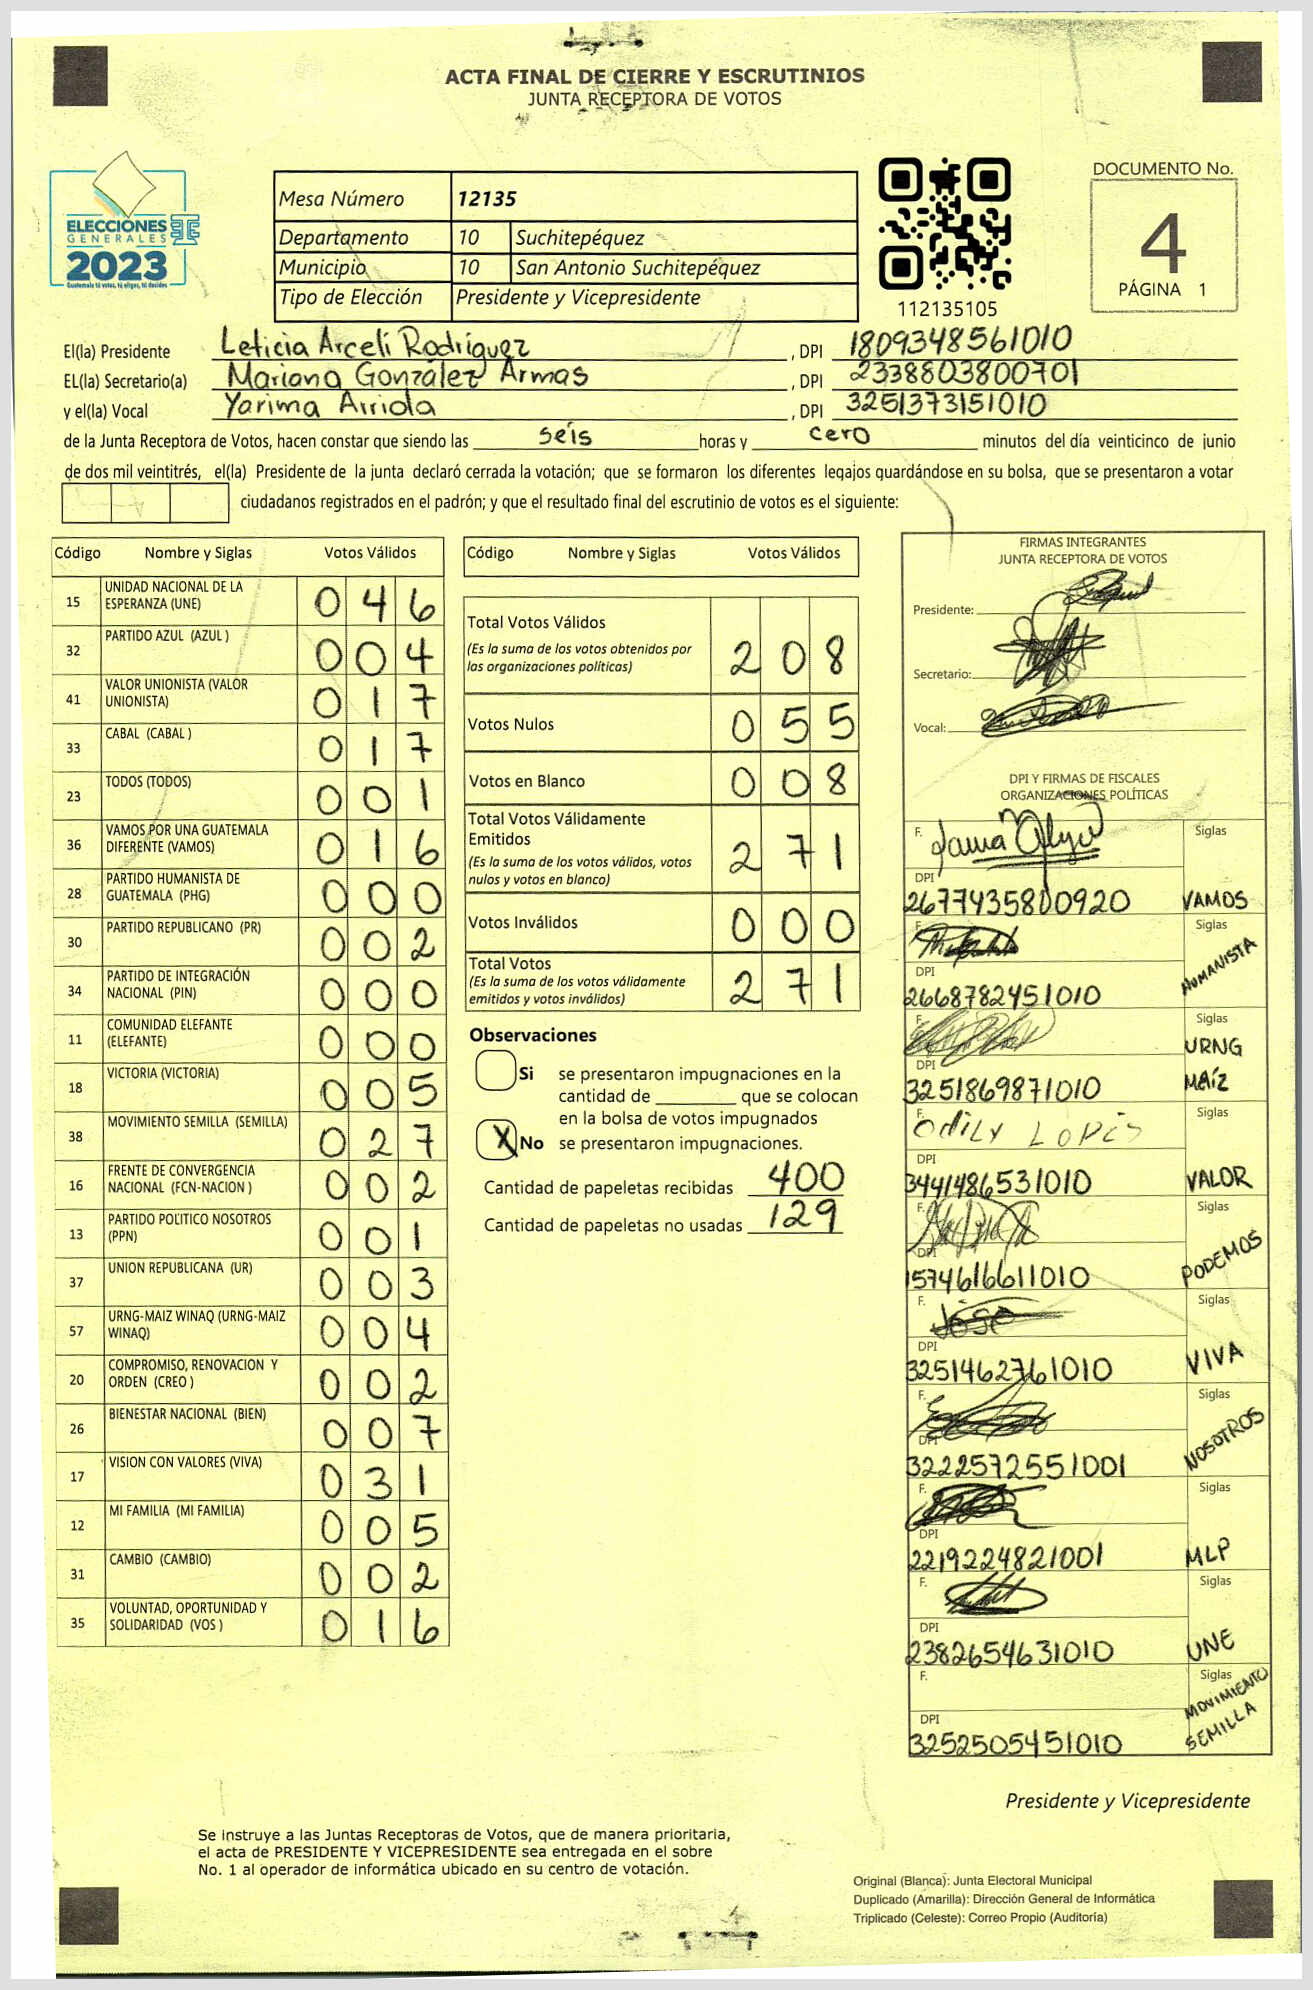 ACTA FINAL DE CIERRE Y ESCRUTINIOS
JUNTA RECEPTORA DE VOTOS
ELECCIONES
GENERALES
2023
Guatemala tú votas, tú eliges, tú decides
Mesa Número 12135
Departamento 10 Suchitepéquez
Municipio 10 San Antonio Suchitepéquez
Tipo de Elección Presidente y Vicepresidente
112135105
DOCUMENTO No.
4
PÁGINA 1
El(la) Presidente Leticia Arceli Rodríguez , DPI 1809348561010
EL(la) Secretario(a) Mariana González Armas , DPI 2338803800701
y el(la) Vocal Yarima Arriola , DPI 3251373151010
de la Junta Receptora de Votos, hacen constar que siendo las seis horas y cero minutos del día veinticinco de junio
de dos mil veintitrés, el(la) Presidente de la junta declaró cerrada la votación; que se formaron los diferentes legajos guardándose en su bolsa, que se presentaron a votar
ciudadanos registrados en el padrón; y que el resultado final del escrutinio de votos es el siguiente:
Código Nombre y Siglas Votos Válidos
15 UNIDAD NACIONAL DE LA ESPERANZA (UNE) 0 4 6
32 PARTIDO AZUL (AZUL ) 0 0 4
41 VALOR UNIONISTA (VALOR UNIONISTA) 0 1 7
33 CABAL (CABAL ) 0 1 7
23 TODOS (TODOS) 0 0 1
36 VAMOS POR UNA GUATEMALA DIFERENTE (VAMOS) 0 1 6
28 PARTIDO HUMANISTA DE GUATEMALA (PHG) 0 0 0
30 PARTIDO REPUBLICANO (PR) 0 0 2
34 PARTIDO DE INTEGRACIÓN NACIONAL (PIN) 0 0 0
11 COMUNIDAD ELEFANTE (ELEFANTE) 0 0 0
18 VICTORIA (VICTORIA) 0 0 5
38 MOVIMIENTO SEMILLA (SEMILLA) 0 2 7
16 FRENTE DE CONVERGENCIA NACIONAL (FCN-NACION ) 0 0 2
13 PARTIDO POLITICO NOSOTROS (PPN) 0 0 1
37 UNION REPUBLICANA (UR) 0 0 3
57 URNG-MAIZ WINAQ (URNG-MAIZ WINAQ) 0 0 4
20 COMPROMISO, RENOVACION Y ORDEN (CREO ) 0 0 2
26 BIENESTAR NACIONAL (BIEN) 0 0 7
17 VISION CON VALORES (VIVA) 0 3 1
12 MI FAMILIA (MI FAMILIA) 0 0 5
31 CAMBIO (CAMBIO) 0 0 2
35 VOLUNTAD, OPORTUNIDAD Y SOLIDARIDAD (VOS ) 0 1 6
Código Nombre y Siglas Votos Válidos
Total Votos Válidos
(Es la suma de los votos obtenidos por
las organizaciones políticas) 2 0 8
Votos Nulos 0 5 5
Votos en Blanco 0 0 8
Total Votos Válidamente
Emitidos
(Es la suma de los votos válidos, votos
nulos y votos en blanco) 2 7 1
Votos Inválidos 0 0 0
Total Votos
(Es la suma de los votos válidamente
emitidos y votos inválidos) 2 7 1
Observaciones
Si se presentaron impugnaciones en la
cantidad de ________ que se colocan
en la bolsa de votos impugnados
X No se presentaron impugnaciones.
Cantidad de papeletas recibidas 400
Cantidad de papeletas no usadas 129
FIRMAS INTEGRANTES
JUNTA RECEPTORA DE VOTOS
Presidente:
Secretario:
Vocal:
DPI Y FIRMAS DE FISCALES
ORGANIZACIONES POLÍTICAS
F. Siglas
DPI
2677435800920 VAMOS
F. Siglas
DPI
2668782451010 HUMANISTA
F. Siglas
DPI URNG
3251869871010 MAÍZ
F. Odily Lopis Siglas
DPI
3441486531010 VALOR
F. Siglas
DPI
1574616611010 PODEMOS
F. José Siglas
DPI
3251462761010 VIVA
F. Siglas
DPI
3222572551001 NOSOTROS
F. Siglas
DPI
2219224821001 MLP
F. Siglas
DPI
2382654631010 UNE
F. Siglas
DPI MOVIMIENTO
3252505451010 SEMILLA
Presidente y Vicepresidente
Se instruye a las Juntas Receptoras de Votos, que de manera prioritaria,
el acta de PRESIDENTE Y VICEPRESIDENTE sea entregada en el sobre
No. 1 al operador de informática ubicado en su centro de votación.
Original (Blanca): Junta Electoral Municipal
Duplicado (Amarilla): Dirección General de Informática
Triplicado (Celeste): Correo Propio (Auditoría)